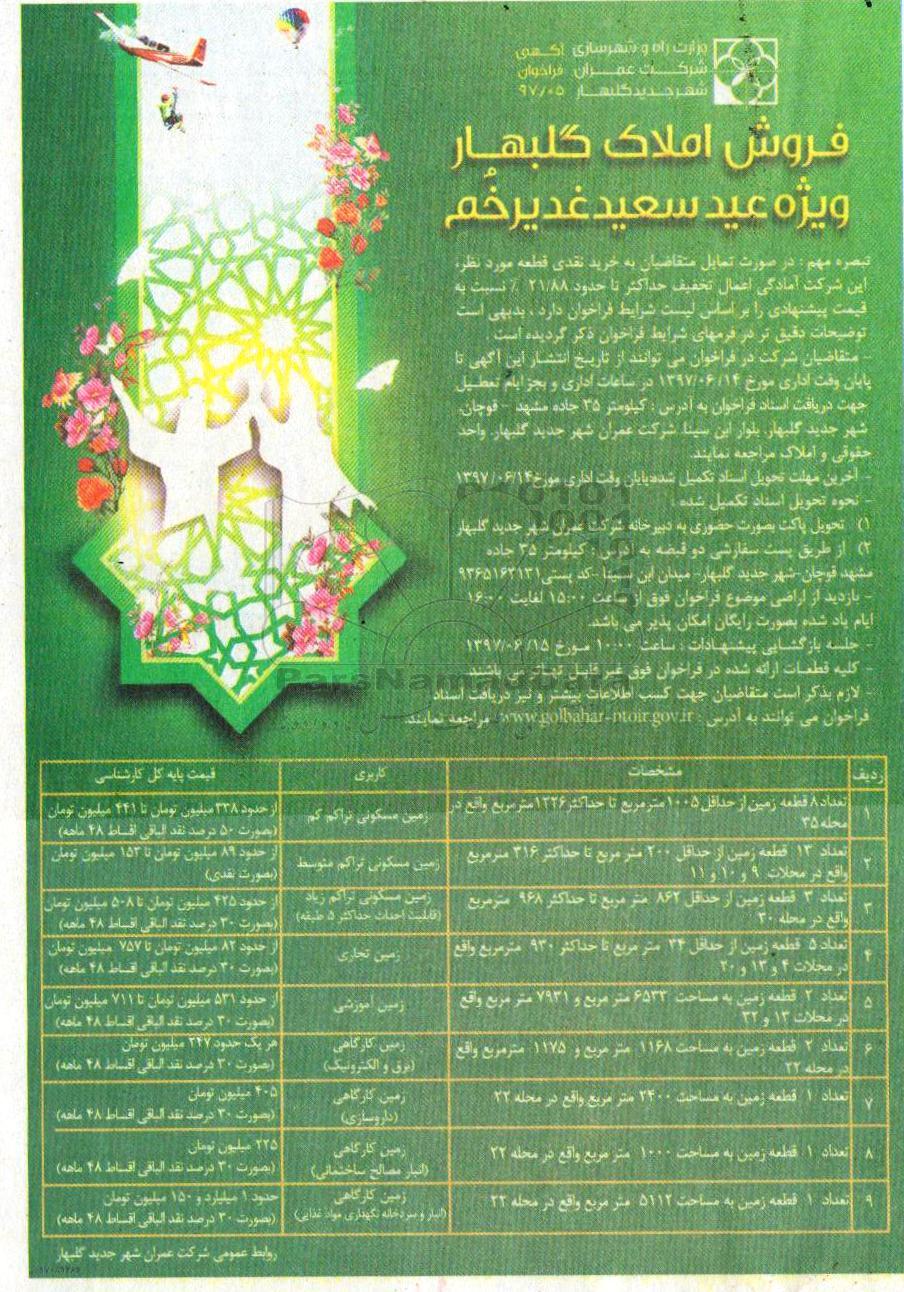 وزارت راه و شهرسازی
شرکت عمران
شهر جدید گلبهار
آگهی
فراخوان
۹۷/۰۵
فروش املاک گلبهار
ویژه عید سعید غدیر خُم
تبصره مهم : در صورت تمایل متقاضیان به خرید نقدی قطعه مورد نظر،
این شرکت آمادگی اعمال تخفیف حداکثر تا حدود ۲۱/۸۸ ٪ نسبت به
قیمت پیشنهادی را بر اساس لیست شرایط فراخوان دارد ، بدیهی است
توضیحات دقیق تر در فرمهای شرایط فراخوان ذکر گردیده است
- متقاضیان شرکت در فراخوان می توانند از تاریخ انتشار این آگهی تا
پایان وقت اداری مورخ ۱۳۹۷/۰۶/۱۴ در ساعات اداری و بجز ایام تعطیل
جهت دریافت اسناد فراخوان به آدرس : کیلومتر ۳۵ جاده مشهد - قوچان،
شهر جدید گلبهار، بلوار ابن سینا، شرکت عمران شهر جدید گلبهار، واحد
حقوقی و املاک مراجعه نمایند.
- آخرین مهلت تحویل اسناد تکمیل شده:پایان وقت اداری مورخ ۱۳۹۷/۰۶/۱۴
- نحوه تحویل اسناد تکمیل شده :
۱) تحویل پاکت بصورت حضوری به دبیرخانه شرکت عمران شهر جدید گلبهار
۲) از طریق پست سفارشی دو قبضه به آدرس : کیلومتر ۳۵ جاده
مشهد قوچان-شهر جدید گلبهار- میدان ابن سینا -کد پستی ۹۳۶۵۱۶۲۱۳۱
- بازدید از اراضی موضوع فراخوان فوق از ساعت ۱۵:۰۰ لغایت ۱۶:۰۰
ایام یاد شده بصورت رایگان امکان پذیر می باشد.
- جلسه بازگشایی پیشنهادات : ساعت ۱۰:۰۰ مورخ ۱۳۹۷/۰۶/۱۵
- کلیه قطعات ارائه شده در فراخوان فوق غیر قابل باشند
- لازم بذکر است متقاضیان جهت کسب اطلاعات بیشتر و نیز دریافت اسناد
فراخوان می توانند به آدرس : www.golbahar-ntoir.gov.ir مراجعه نمایند.
ParsNamadData
ردیف مشخصات کاربری قیمت پایه کل کارشناسی
۱ تعداد ۸ قطعه زمین از حداقل ۱۰۰۵ مترمربع تا حداکثر ۱۲۲۶ مترمربع واقع در
محله ۳۵
زمین مسکونی تراکم کم
از حدود ۳۳۸ میلیون تومان تا ۴۴۱ میلیون تومان
(بصورت ۵۰ درصد نقد الباقی اقساط ۴۸ ماهه)
۲ تعداد ۱۳ قطعه زمین از حداقل ۲۰۰ متر مربع تا حداکثر ۳۱۶ مترمربع
واقع در محلات ۹ و ۱۰ و ۱۱
زمین مسکونی تراکم متوسط
از حدود ۸۹ میلیون تومان تا ۱۵۳ میلیون تومان
(بصورت نقدی)
۳ تعداد ۳ قطعه زمین از حداقل ۸۶۲ متر مربع تا حداکثر ۹۶۸ مترمربع
واقع در محله ۳۰
زمین مسکونی تراکم زیاد
(قابلیت احداث حداکثر ۵ طبقه)
از حدود ۴۲۵ میلیون تومان تا ۵۰۸ میلیون تومان
(بصورت ۳۰ درصد نقد الباقی اقساط ۴۸ ماهه)
۴ تعداد ۵ قطعه زمین از حداقل ۳۴ متر مربع تا حداکثر ۹۳۰ مترمربع واقع
در محلات ۴ و ۱۳ و ۲۰
زمین تجاری
از حدود ۸۲ میلیون تومان تا ۷۵۷ میلیون تومان
(بصورت ۳۰ درصد نقد الباقی اقساط ۴۸ ماهه)
۵ تعداد ۲ قطعه زمین به مساحت ۶۵۳۲ متر مربع و ۷۹۳۱ متر مربع واقع
در محلات ۱۳ و ۳۲
زمین آموزشی
از حدود ۵۳۱ میلیون تومان تا ۷۱۱ میلیون تومان
(بصورت ۳۰ درصد نقد الباقی اقساط ۴۸ ماهه)
۶ تعداد ۲ قطعه زمین به مساحت ۱۱۶۸ متر مربع و ۱۱۷۵ مترمربع واقع
در محله ۲۲
زمین کارگاهی
(برق و الکترونیک)
هر یک حدود ۲۴۷ میلیون تومان
(بصورت ۳۰ درصد نقد الباقی اقساط ۴۸ ماهه)
۷ تعداد ۱ قطعه زمین به مساحت ۲۴۰۰ متر مربع واقع در محله ۲۲
زمین کارگاهی
(داروسازی)
۴۰۵ میلیون تومان
(بصورت ۳۰ درصد نقد الباقی اقساط ۴۸ ماهه)
۸ تعداد ۱ قطعه زمین به مساحت ۱۰۰۰ متر مربع واقع در محله ۲۲
زمین کارگاهی
(انبار مصالح ساختمانی)
۲۲۵ میلیون تومان
(بصورت ۳۰ درصد نقد الباقی اقساط ۴۸ ماهه)
۹ تعداد ۱ قطعه زمین به مساحت ۵۱۱۲ متر مربع واقع در محله ۲۲
زمین کارگاهی
(انبار و سردخانه نگهداری مواد غذایی)
حدود ۱ میلیارد و ۱۵۰ میلیون تومان
(بصورت ۳۰ درصد نقد الباقی اقساط ۴۸ ماهه)
روابط عمومی شرکت عمران شهر جدید گلبهار